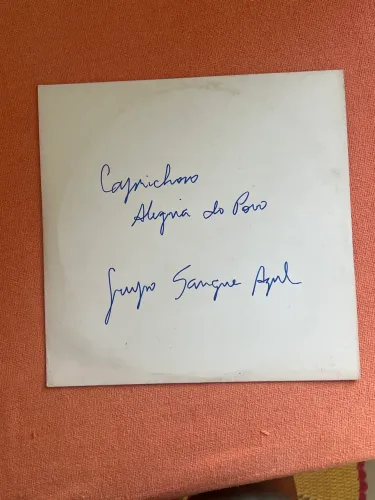 Caprichoso
Alegria do Povo
Grupo Sangue Azul